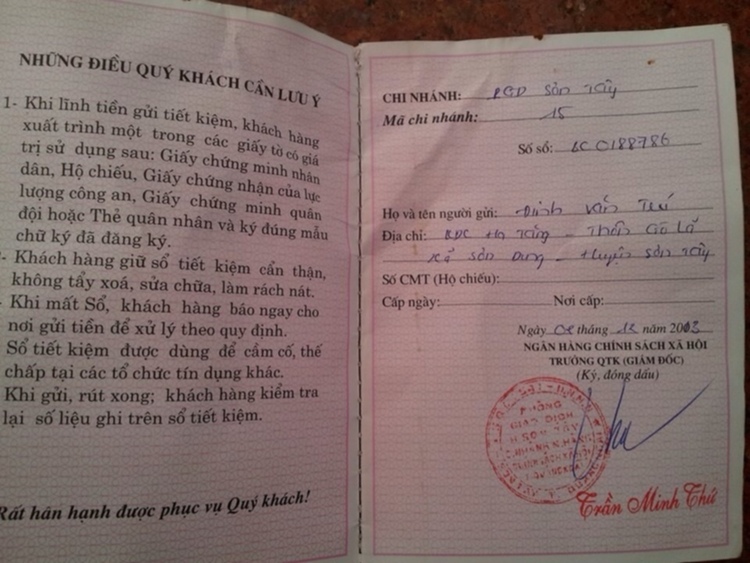 NHỮNG ĐIỀU QUÝ KHÁCH CẦN LƯU Ý
1- Khi lĩnh tiền gửi tiết kiệm, khách hàng
xuất trình một trong các giấy tờ có giá
trị sử dụng sau: Giấy chứng minh nhân
dân, Hộ chiếu, Giấy chứng nhận của lực
lượng công an, Giấy chứng minh quân
đội hoặc Thẻ quân nhân và ký đúng mẫu
chữ ký đã đăng ký.
- Khách hàng giữ sổ tiết kiệm cẩn thận,
không tẩy xoá, sửa chữa, làm rách nát.
Khi mất Sổ, khách hàng báo ngay cho
nơi gửi tiền để xử lý theo quy định.
Sổ tiết kiệm được dùng để cầm cố, thế
chấp tại các tổ chức tín dụng khác.
Khi gửi, rút xong; khách hàng kiểm tra
lại số liệu ghi trên sổ tiết kiệm.
Rất hân hạnh được phục vụ Quý khách!
CHI NHÁNH: PGD Sơn Tây
Mã chi nhánh: 15
Số sổ: 6C 0188786
Họ và tên người gửi: Đinh Văn
Địa chỉ: KDC - Thôn
Sơn Dung - Huyện Sơn Tây
Số CMT (Hộ chiếu):
Cấp ngày: Nơi cấp:
Ngày tháng 12 năm 2003
NGÂN HÀNG CHÍNH SÁCH XÃ HỘI
TRƯỞNG QTK (GIÁM ĐỐC)
(Ký, đóng dấu)
PHÒNG
GIAO DỊCH
H.SƠN TÂY
Trần Minh Thứ